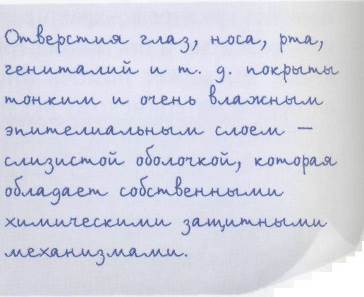 Отверстия глаз, носа, рта,
гениталий и т. д. покрыты
тонким и очень влажным
эпителиальным слоем —
слизистой оболочкой, которая
обладает собственными
химическими защитными
механизмами.